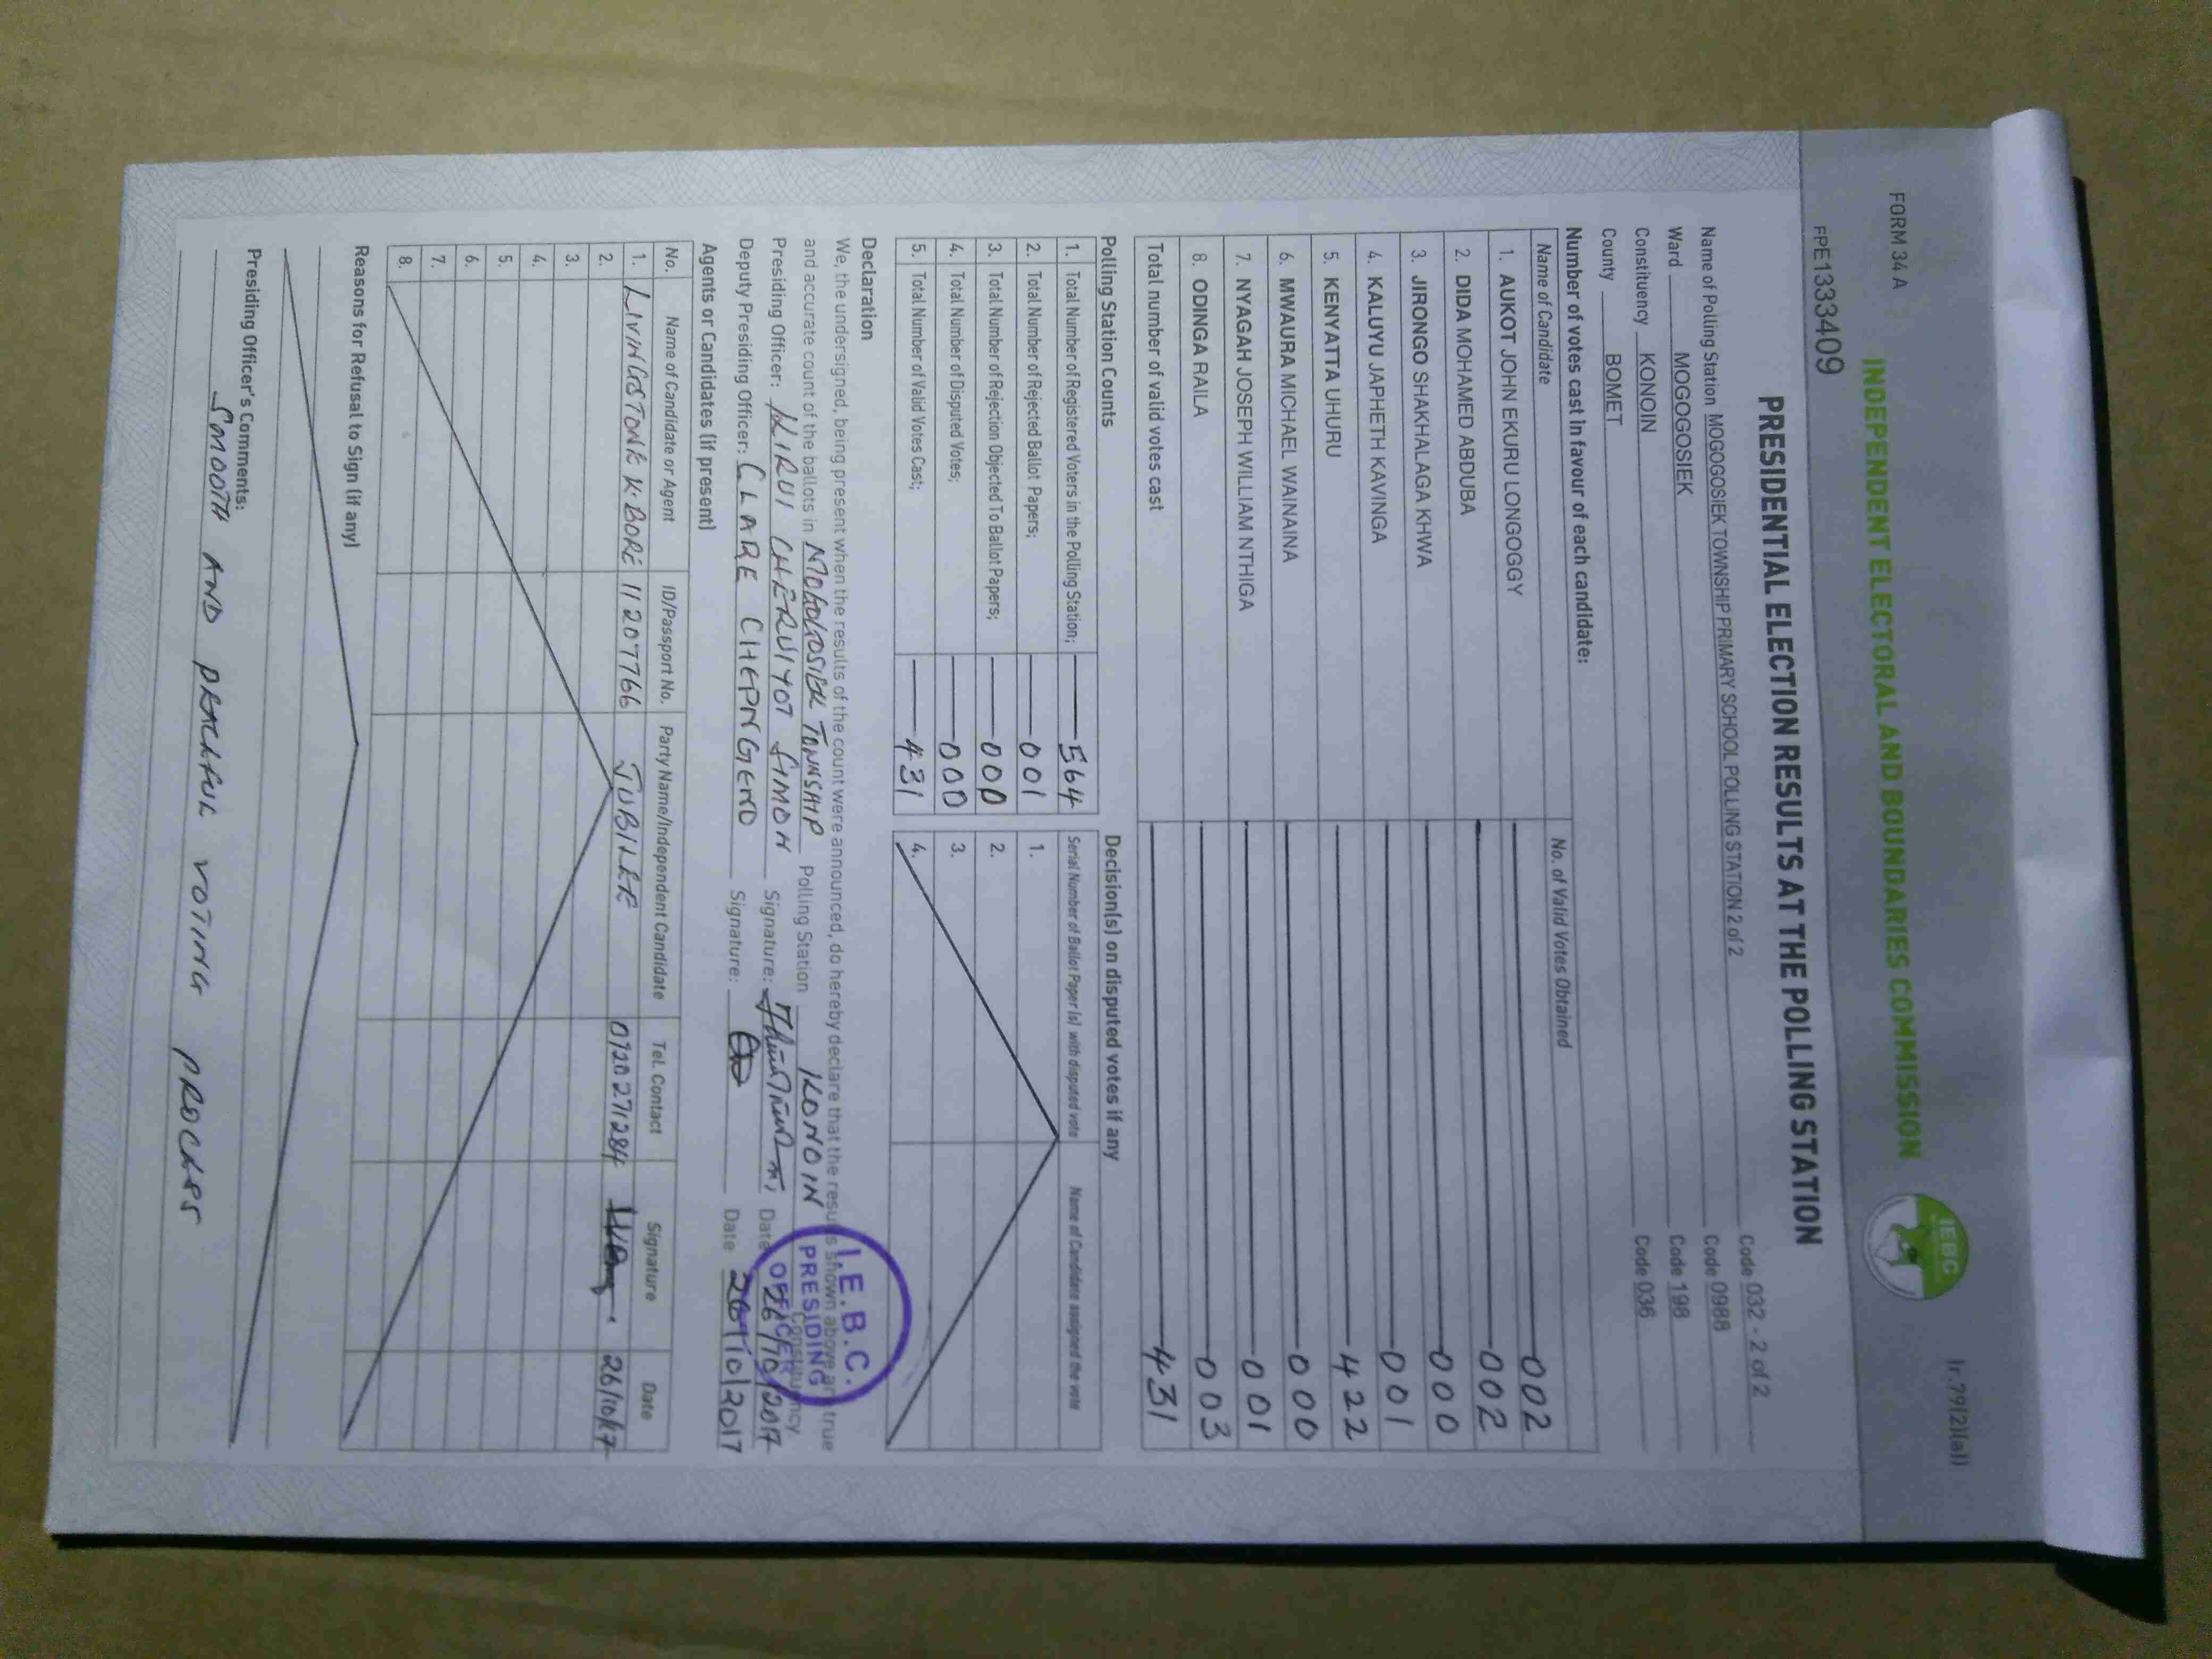 FORM 34 A
(r.79(2)(a))
INDEPENDENT ELECTORAL AND BOUNDARIES COMMISSION
IEBC
FPE1333409
PRESIDENTIAL ELECTION RESULTS AT THE POLLING STATION
Name of Polling Station MOGOGOSIEK TOWNSHIP PRIMARY SCHOOL POLLING STATION 2 of 2 Code 032 - 2 of 2
Ward MOGOGOSIEK Code 0988
Constituency KONOIN Code 198
County BOMET Code 036
Number of votes cast in favour of each candidate:
Name of Candidate No. of Valid Votes Obtained
1. AUKOT JOHN EKURU LONGOGGY 002
2. DIDA MOHAMED ABDUBA 002
3. JIRONGO SHAKHALAGA KHWA 000
4. KALUYU JAPHETH KAVINGA 001
5. KENYATTA UHURU 422
6. MWAURA MICHAEL WAINAINA 000
7. NYAGAH JOSEPH WILLIAM NTHIGA 001
8. ODINGA RAILA 003
Total number of valid votes cast 431
Polling Station Counts
1. Total Number of Registered Voters in the Polling Station; 564
2. Total Number of Rejected Ballot Papers; 001
3. Total Number of Rejection Objected To Ballot Papers; 000
4. Total Number of Disputed Votes; 000
5. Total Number of Valid Votes Cast; 431
Decision(s) on disputed votes if any
Serial Number of Ballot Paper (s) with disputed vote Name of Candidate assigned the vote
1.
2.
3.
4.
Declaration
We, the undersigned, being present when the results of the count were announced, do hereby declare that the results shown above are true
and accurate count of the ballots in MOGOGOSIEK TOWNSHIP Polling Station KONOIN Constituency.
Presiding Officer: KIRUI CHERUIYOT SIMON Signature: Date 26/10/2017
Deputy Presiding Officer: CLARE CHEPNGENO Signature: Date 26/10/2017
I.E.B.C.
PRESIDING
OFFICER
Agents or Candidates (if present)
No. Name of Candidate or Agent ID/Passport No. Party Name/Independent Candidate Tel. Contact Signature Date
1. LIVINGSTONE K. BORE 11207766 JUBILEE 0720271284 26/10/17
2.
3.
4.
5.
6.
7.
8.
Reasons for Refusal to Sign (if any)
Presiding Officer's Comments:
SMOOTH AND PEACEFUL VOTING PROCESS